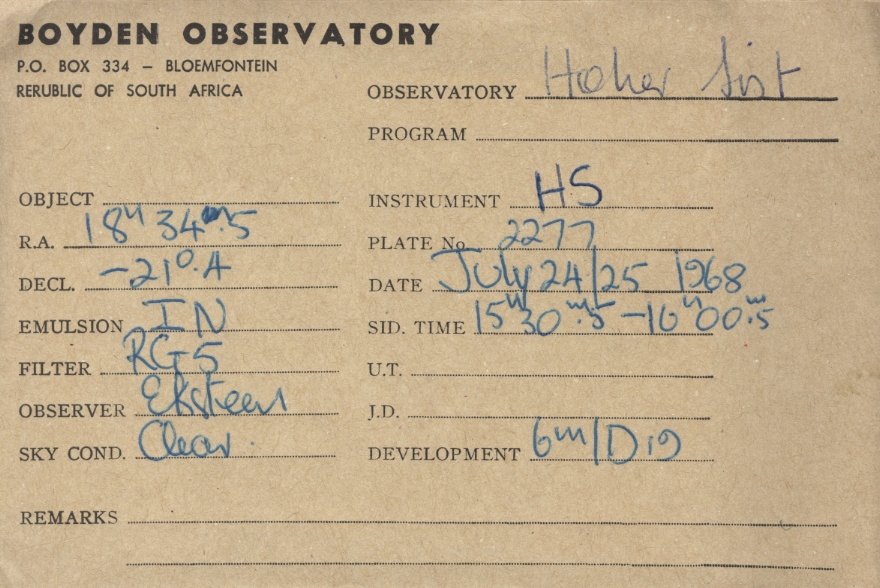 BOYDEN OBSERVATORY
P.O. BOX 334 – BLOEMFONTEIN
RERUBLIC OF SOUTH AFRICA
OBSERVATORY Hoher List
PROGRAM
OBJECT
R.A. 18h 34m.5
DECL. -21°.4
EMULSION IN
FILTER RG5
OBSERVER Eksteen
SKY COND. Clear.
INSTRUMENT HS
PLATE No 2277
DATE July 24/25 1968
SID. TIME 15h 30m.5 – 16h 00m.5
U.T.
J.D.
DEVELOPMENT 6m/D19
REMARKS